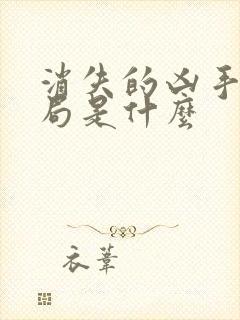 消失的凶手
局是什麼
衣葦